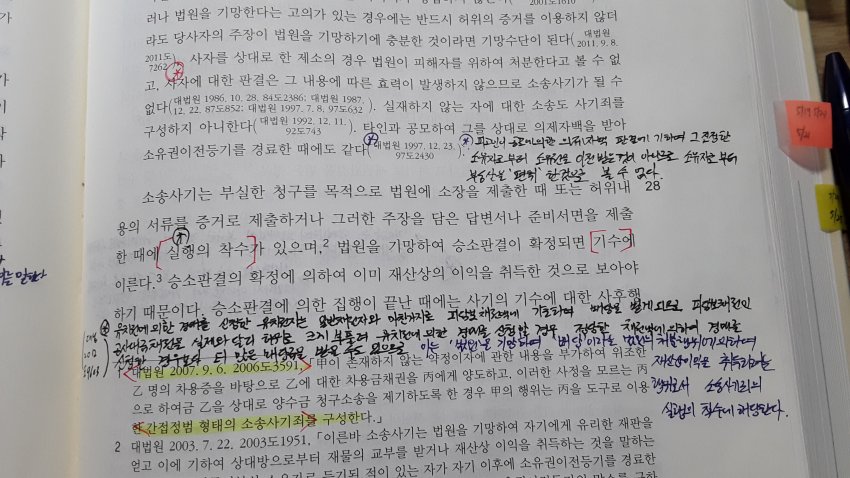 러나 법원을 기망한다는 고의가 있는 경우에는 반드시 허위의 증거를 이용하지 않더
라도 당사자의 주장이 법원을 기망하기에 충분한 것이라면 기망수단이 된다(대법원 2011. 9. 8.
2011도7262). 사자를 상대로 한 제소의 경우 법원이 피해자를 위하여 처분한다고 볼 수 없
고, 사자에 대한 판결은 그 내용에 따른 효력이 발생하지 않으므로 소송사기가 될 수
없다(대법원 1986. 10. 28. 84도2386; 대법원 1987. 12. 22. 87도852; 대법원 1997. 7. 8. 97도632). 실재하지 않는 자에 대한 소송도 사기죄를
구성하지 아니한다(대법원 1992. 12. 11. 92도743). 타인과 공모하여 그를 상대로 의제자백을 받아
소유권이전등기를 경료한 때에도 같다(대법원 1997. 12. 23. 97도2430).
의제자백 판결에 기하여 그 진정한
소유자로부터 소유권을 이전받은 것이 아니므로 소유자로부터
부동산을 '편취'한 것으로 볼 수 없다.
소송사기는 부실한 청구를 목적으로 법원에 소장을 제출한 때 또는 허위내 28
용의 서류를 증거로 제출하거나 그러한 주장을 담은 답변서나 준비서면을 제출
한 때에 실행의 착수가 있으며,2 법원을 기망하여 승소판결이 확정되면 기수에
이른다.3 승소판결의 확정에 의하여 이미 재산상의 이익을 취득한 것으로 보아야
하기 때문이다. 승소판결에 의한 집행이 끝난 때에는 사기의 기수에 대한 사후행
유치권에 의한 경매를 신청한 유치권자는 일반채권자와 마찬가지로 피담보채권액에 기초하여 배당을 받게 되므로 피담보채권인
공사대금채권을 실제와 달리 허위로 크게 부풀려 유치권에 의한 경매를 신청할 경우 정당한 채권액에 의하여 경매를
신청한 경우보다 더 많은 배당금을 받을 수도 있으므로 이는 법원을 기망하여 배당이라는 법원의 처분행위에 의하여
재산상 이익을 취득하려는
행위로서 소송사기죄의
실행의 착수에 해당한다.
대법원 2007. 9. 6. 2006도3591, 「甲이 존재하지 않는 약정이자에 관한 내용을 부가하여 위조한
乙 명의 차용증을 바탕으로 乙에 대한 차용금채권을 丙에게 양도하고, 이러한 사정을 모르는 丙
으로 하여금 乙을 상대로 양수금 청구소송을 제기하도록 한 경우 甲의 행위는 丙을 도구로 이용
한 간접정범 형태의 소송사기죄를 구성한다.」
2 대법원 2003. 7. 22. 2003도1951, 「이른바 소송사기는 법원을 기망하여 자기에게 유리한 재판을
얻고 이에 기하여 상대방으로부터 재물의 교부를 받거나 재산상 이익을 취득하는 것을 말하는